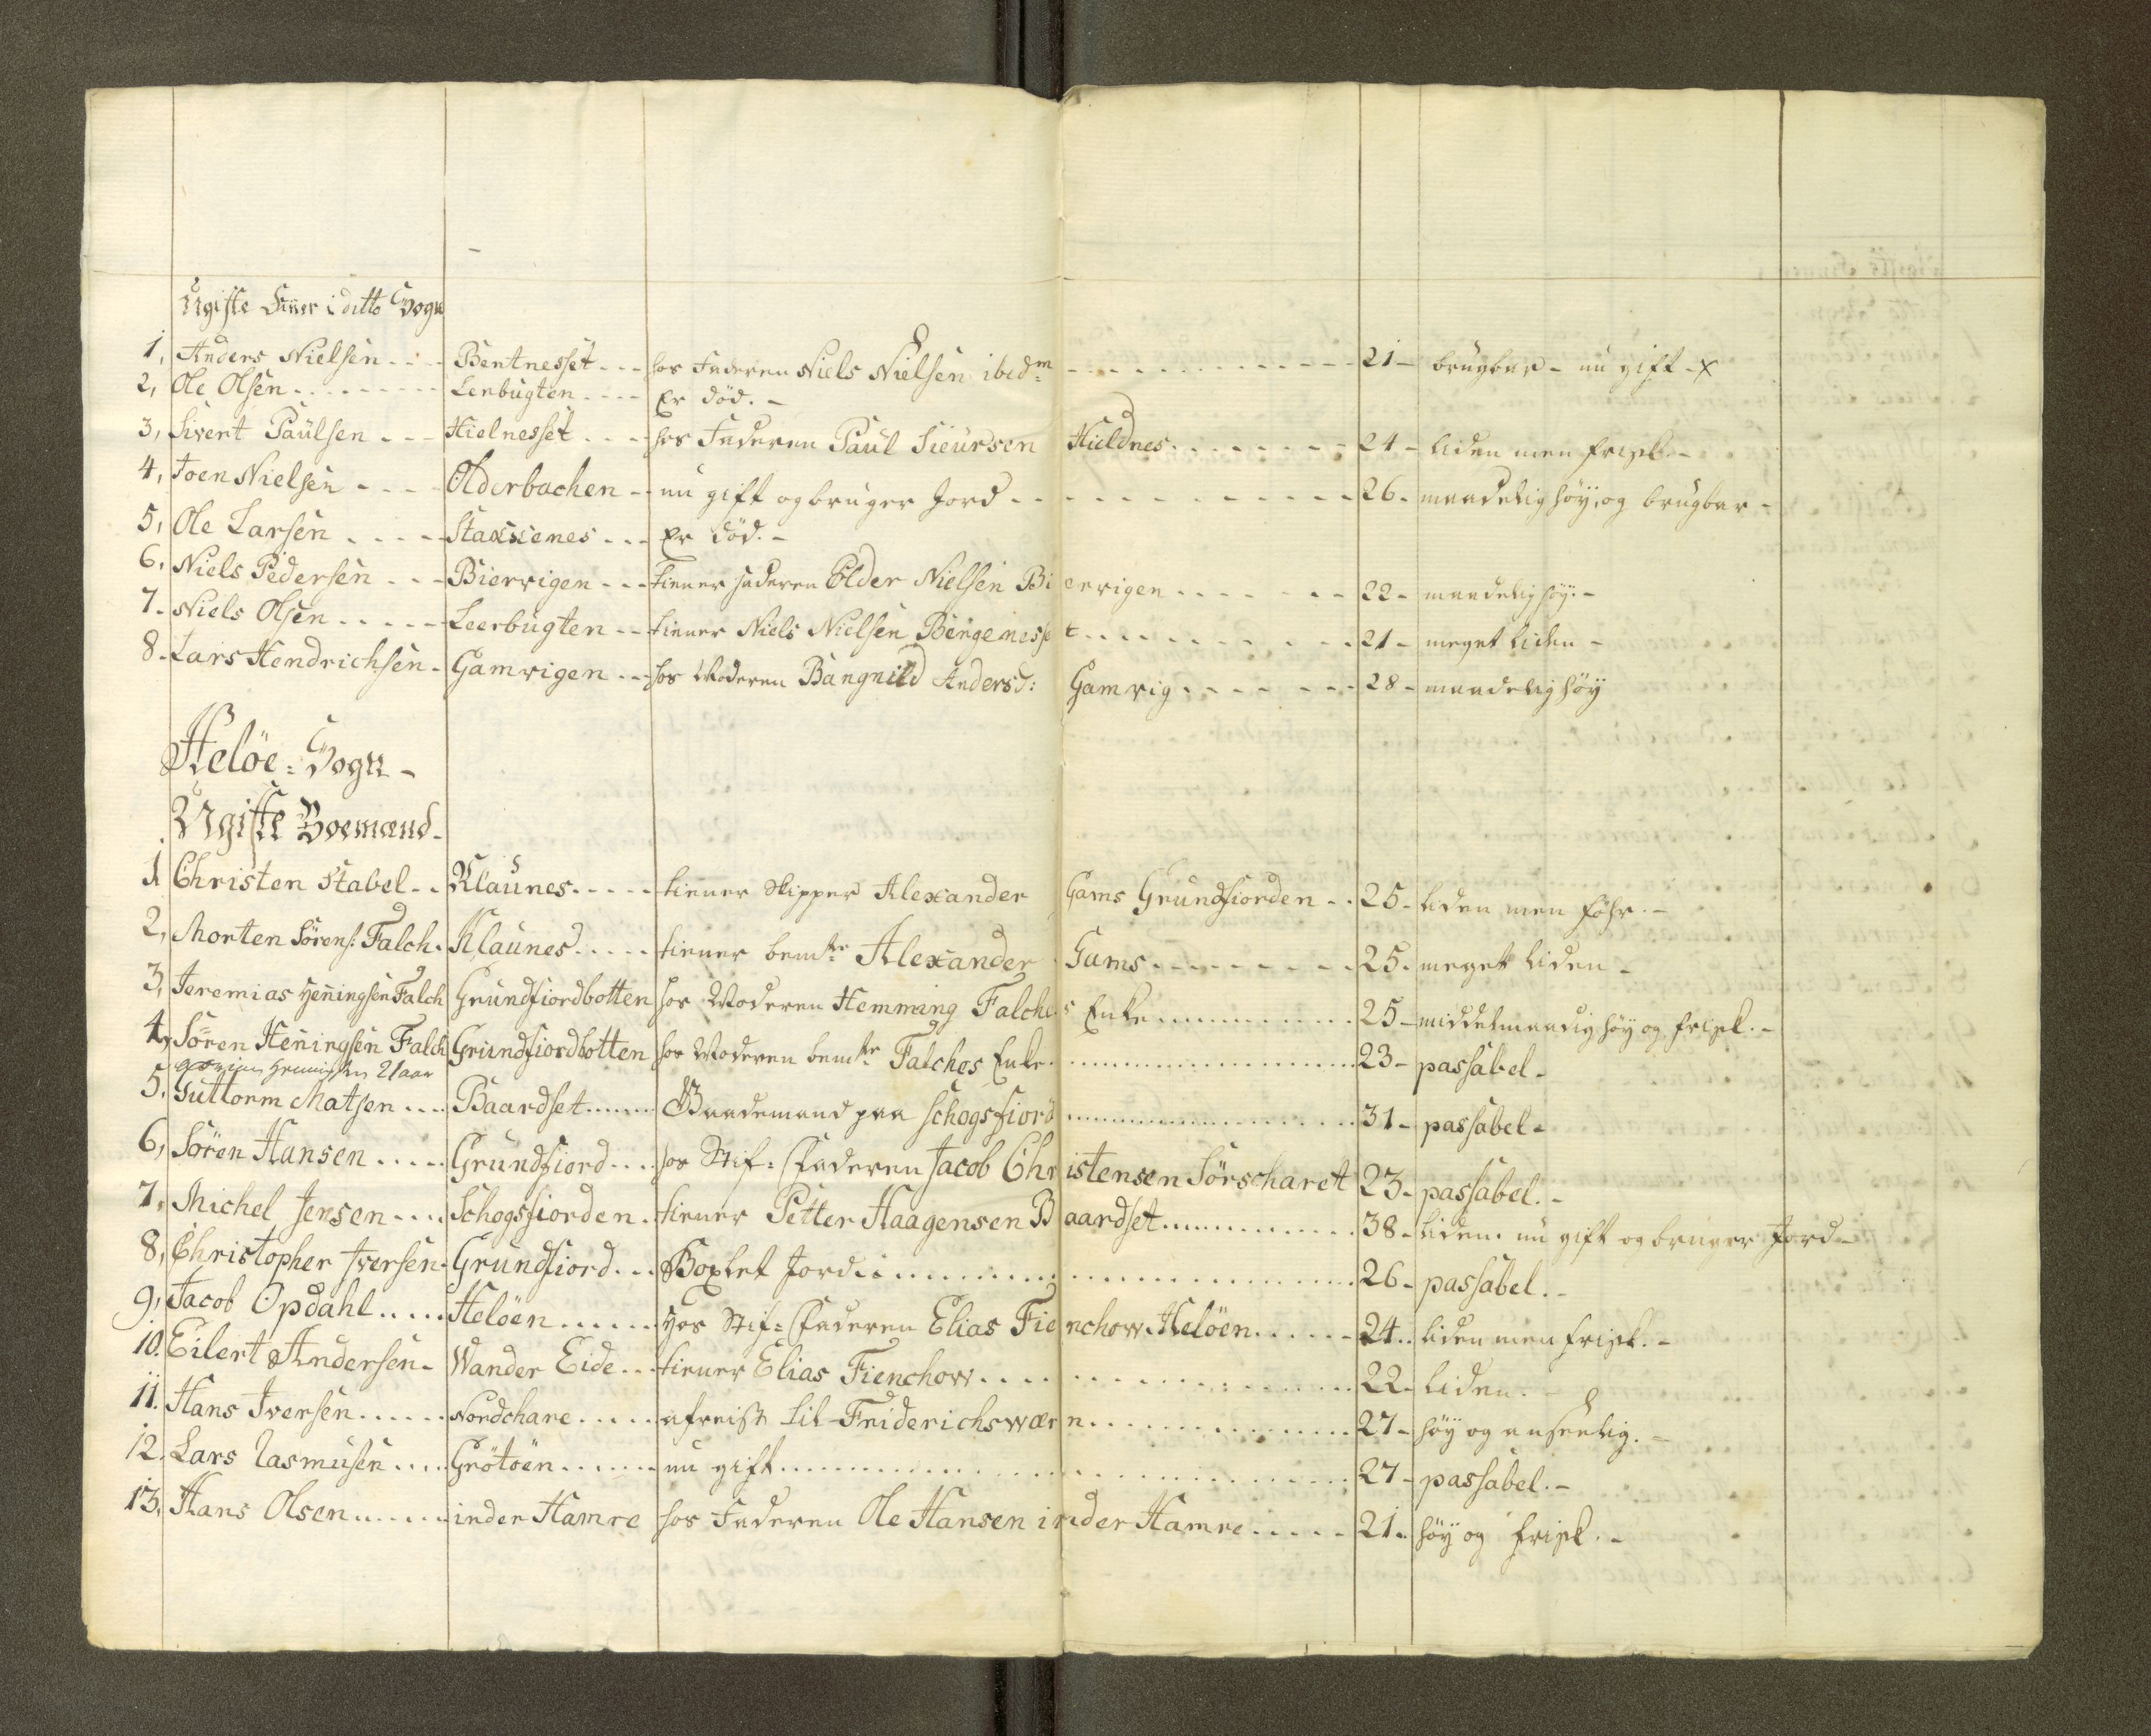 Ugifte Finer i ditto Sogn
1, Anders Nielsen - - - Bentnesset - - - hos Faderen Niels Nielsen ibidm - - - 21 - brugbar - nu gift - x
2, Ole Olsen - - - Lerbugten - - - Er död. -
3, Sivert Paulsen - - - Hielnesset - - - hos Faderen Paul Sieursen Hieldnes - - - 24 - liden men frisk. -
4, Joen Nielsen - - - Olderbachen - - nu gift og bruger Jord - - - 26 - maadelig höy, og brugbar -
5, Ole Larsen - - - Staxenes - - - Er död. -
6, Niels Pedersen - - - Bierrigen - - - tiener Faderen Polder Nielsen Bierrigen - - - 22 - maadelig höy. -
7. Niels Olsen - - - Leerbugten - - tiener Niels Nielsen Bergenesset - - - 21 - meget liden -
8. Lars Hendrichsen - Gamvigen - - hos Moderen Bangnild Andersd: Gamvig - - - 28 - maadelig höy
Helöe = Sogn -
Ugifte Boemænd -
1 Christen Stabel - - Klaunes - - - tiener Skipper Alexander Gams Grundfiorden - - 25 - liden men föhr. -
2, Morten Sörens: Falch - Klaunes - - - tiener bemte Alexander Gams - - - 25 - meget liden -
3, Jeremias Heningsen Falch Grundfiordbotten hos Moderen Hemming Falches Enke - - - 25 - middelmaadig höy og frisk. -
4, Sören Heningsen Falch Grundfiordbotten hos Moderen bemte Falches Enke - - - 23 - passabel -
Henningsen 21 aar
5. Guttorm Matsen - - - Baardset - - - Baademand paa Schogsfiord - - - 31 - passabel -
6, Sören Hansen - - - Grundfiord - - - hos Stif = Faderen Jacob Christensen Sörscharet 23 - passabel. -
7, Michel Jensen - - - Schogsfiorden - tiener Petter Haagensen Baardset - - - 38 - liden. nu gift og bruger Jord -
8, Christopher Iversen - Grundfiord - - - Boxlet Jord - - - 26 - passabel. -
9, Jacob Opdahl - - - Helöen - - - Hos Stif = Faderen Elias Fienchow Helöen - - - 24 - liden men frisk. -
10. Eilert Andersen - Wander Eide - - tiener Elias Fienchow - - - 22 - liden. -
11. Hans Iversen - - - Nordchare - - - afreist til Friderichswærn - - - 27 - höy og anseelig. -
12. Lars Rasmusen - - - Grötöen - - - nu gift - - - 27 - passabel. -
13, Hans Olsen - - - inder Hamre hos Faderen Ole Hansen inder Hamre - - - 21 - höy og frisk. -